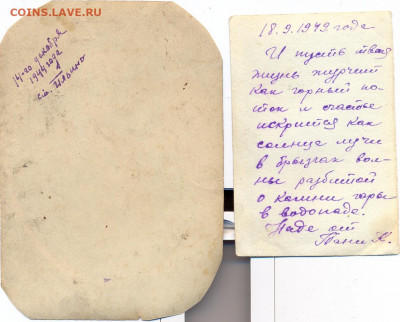 COINS.ЛАВЕ.РУ
14-го декабря
1944 года
ст. Ильино
18.9.1949 года
И пусть твоя
жизнь журчит
как горный по-
ток и счастье
искрится как
солнца лучи
в брызгах вол-
ны разбитой
о камни горы
в водопаде.
Наде от
Тани К.